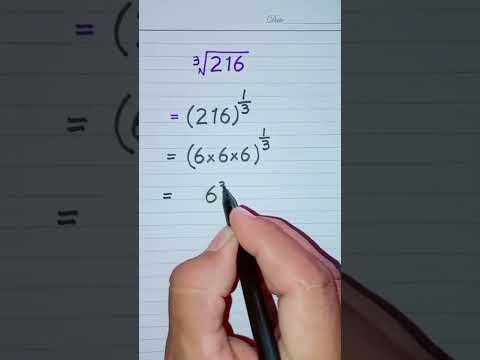 Date
∛216
= (216)^1/3
= (6×6×6)^1/3
= 6^3